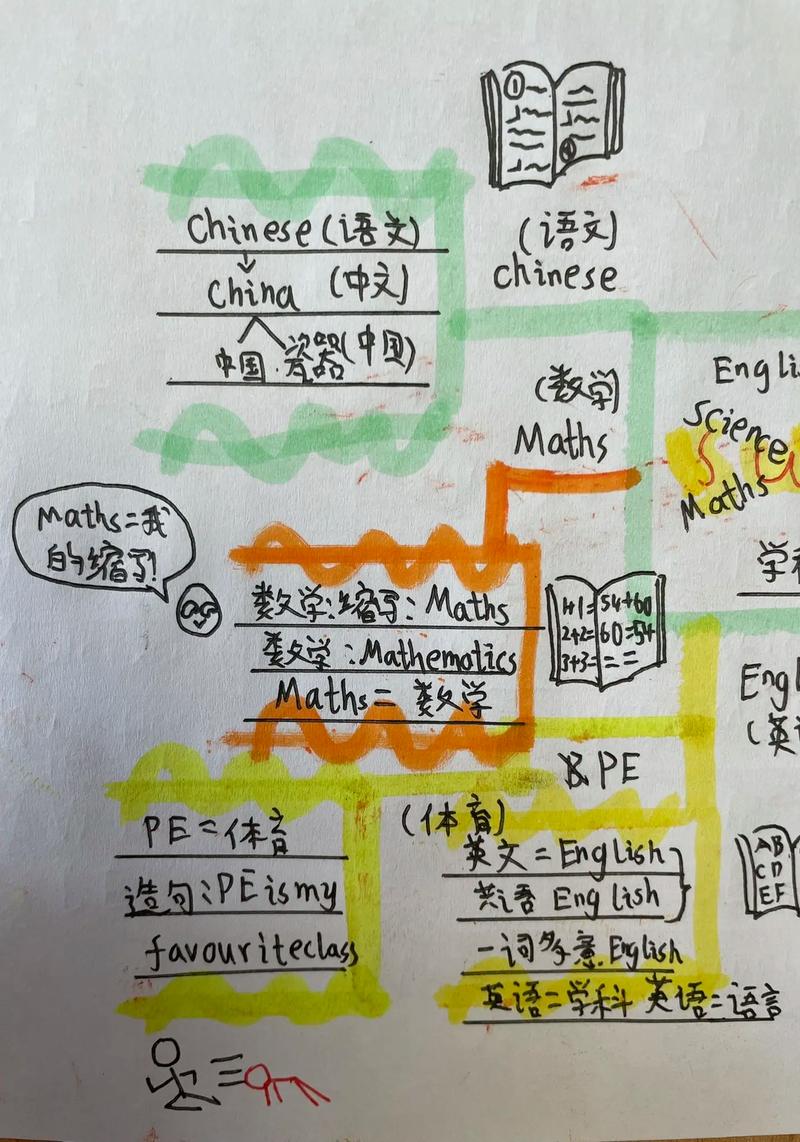 Chinese (语文)
China (中文)
中国 瓷器 (中国)
(语文)
chinese
(数学)
Maths
Engli
Science
Maths
学科
Maths=我
的缩写!
数学:缩写:Maths
数学:Mathematics
Maths=数学
1+1=
2+2=
3+3=
54+60
60=54
= =
PE
(体育)
PE=体育
造句:PE is my
favouriteclass
英文=English
英语 English
一词多意 English
英语=学科 英语=语言
Engl
(英语
AB
CD
EF